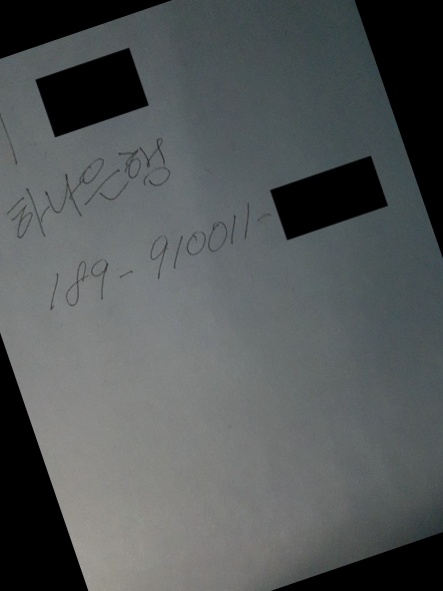 하나은행
189-910011-